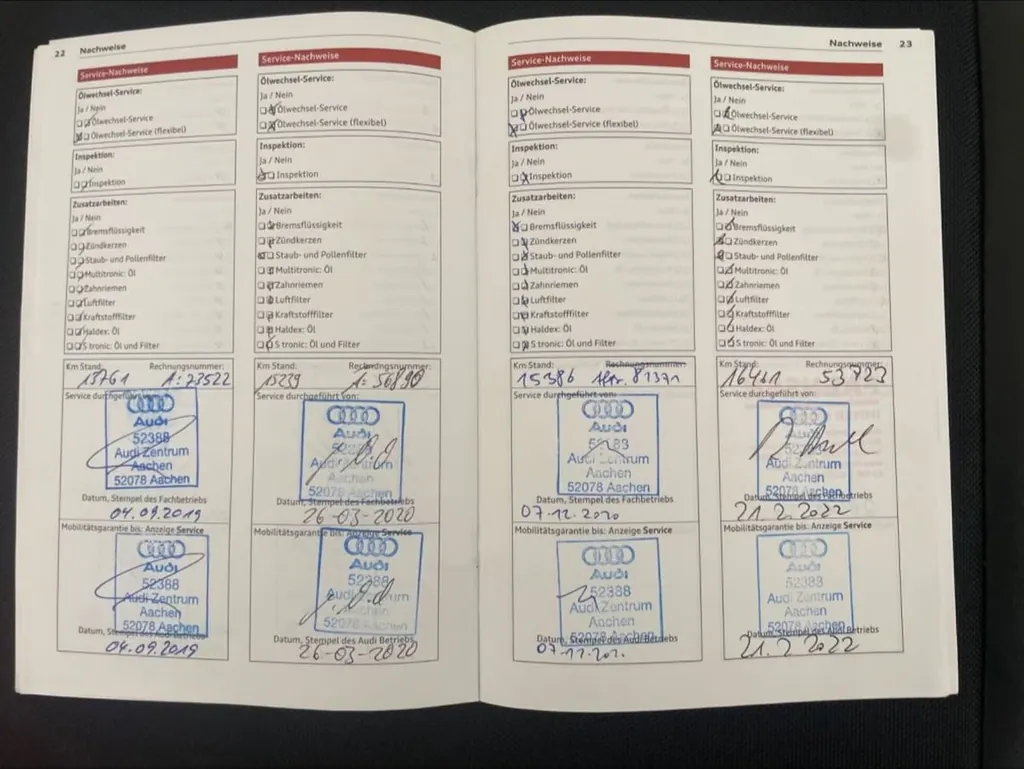 22 Nachweise
Service-Nachweise
Ölwechsel-Service:
Ja / Nein
Ölwechsel-Service
Ölwechsel-Service (flexibel)
Inspektion:
Ja / Nein
Inspektion
Zusatzarbeiten:
Ja / Nein
Bremsflüssigkeit
Zündkerzen
Staub- und Pollenfilter
Multitronic: Öl
Zahnriemen
Luftfilter
Kraftstofffilter
Haldex: Öl
S tronic: Öl und Filter
Km Stand: Rechnungsnummer:
13761 A: 23522
Service durchgeführt von:
Audi
52388
Audi Zentrum
Aachen
52078 Aachen
Datum, Stempel des Fachbetriebs
04.09.2019
Mobilitätsgarantie bis: Anzeige Service
Audi
52388
Audi Zentrum
Aachen
52078 Aachen
Datum, Stempel des Audi Betriebs
04.09.2019
Service-Nachweise
Ölwechsel-Service:
Ja / Nein
Ölwechsel-Service
Ölwechsel-Service (flexibel)
Inspektion:
Ja / Nein
Inspektion
Zusatzarbeiten:
Ja / Nein
Bremsflüssigkeit
Zündkerzen
Staub- und Pollenfilter
Multitronic: Öl
Zahnriemen
Luftfilter
Kraftstofffilter
Haldex: Öl
S tronic: Öl und Filter
Km Stand: Rechnungsnummer:
15239 A: 56890
Service durchgeführt von:
Audi
Audi Zentrum
Aachen
52078 Aachen
Datum, Stempel des Fachbetriebs
26-03-2020
Mobilitätsgarantie bis: Anzeige Service
Audi
52388
Audi Zentrum
Aachen
52078 Aachen
Datum, Stempel des Audi Betriebs
26-03-2020
Nachweise 23
Service-Nachweise
Ölwechsel-Service:
Ja / Nein
Ölwechsel-Service
Ölwechsel-Service (flexibel)
Inspektion:
Ja / Nein
Inspektion
Zusatzarbeiten:
Ja / Nein
Bremsflüssigkeit
Zündkerzen
Staub- und Pollenfilter
Multitronic: Öl
Zahnriemen
Luftfilter
Kraftstofffilter
Haldex: Öl
S tronic: Öl und Filter
Km Stand: Rechnungsnummer:
15386 81371
Service durchgeführt von:
Audi
Audi Zentrum
Aachen
52078 Aachen
Datum, Stempel des Fachbetriebs
07.12.2020
Mobilitätsgarantie bis: Anzeige Service
Audi
52388
Audi Zentrum
Aachen
52078 Aachen
Datum, Stempel des Audi Betriebs
Service-Nachweise
Ölwechsel-Service:
Ja / Nein
Ölwechsel-Service
Ölwechsel-Service (flexibel)
Inspektion:
Ja / Nein
Inspektion
Zusatzarbeiten:
Ja / Nein
Bremsflüssigkeit
Zündkerzen
Staub- und Pollenfilter
Multitronic: Öl
Zahnriemen
Luftfilter
Kraftstofffilter
Haldex: Öl
S tronic: Öl und Filter
Km Stand: Rechnungsnummer:
16461 53723
Service durchgeführt von:
Audi
Audi Zentrum
Aachen
52078 Aachen
Datum, Stempel des Fachbetriebs
21.2.2022
Mobilitätsgarantie bis: Anzeige Service
Audi
52388
Audi Zentrum
Aachen
52078 Aachen
Datum, Stempel des Audi Betriebs
21.2 2022